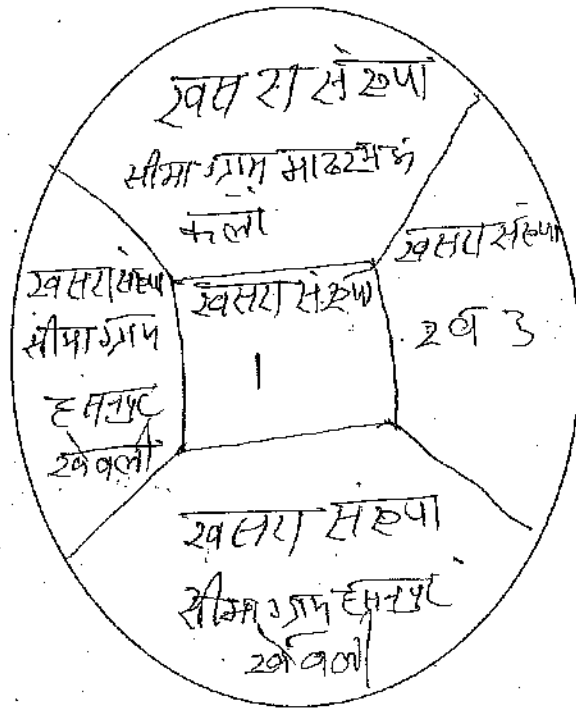 खसरा संख्या
सीमा ग्राम माढरमऊ
कलां
खसरा संख्या
सीमा ग्राम
हसनपुर
खेवली
खसरा संख्या
1
खसरा संख्या
2 व 3
खसरा संख्या
सीमा ग्राम हसनपुर
खेवली